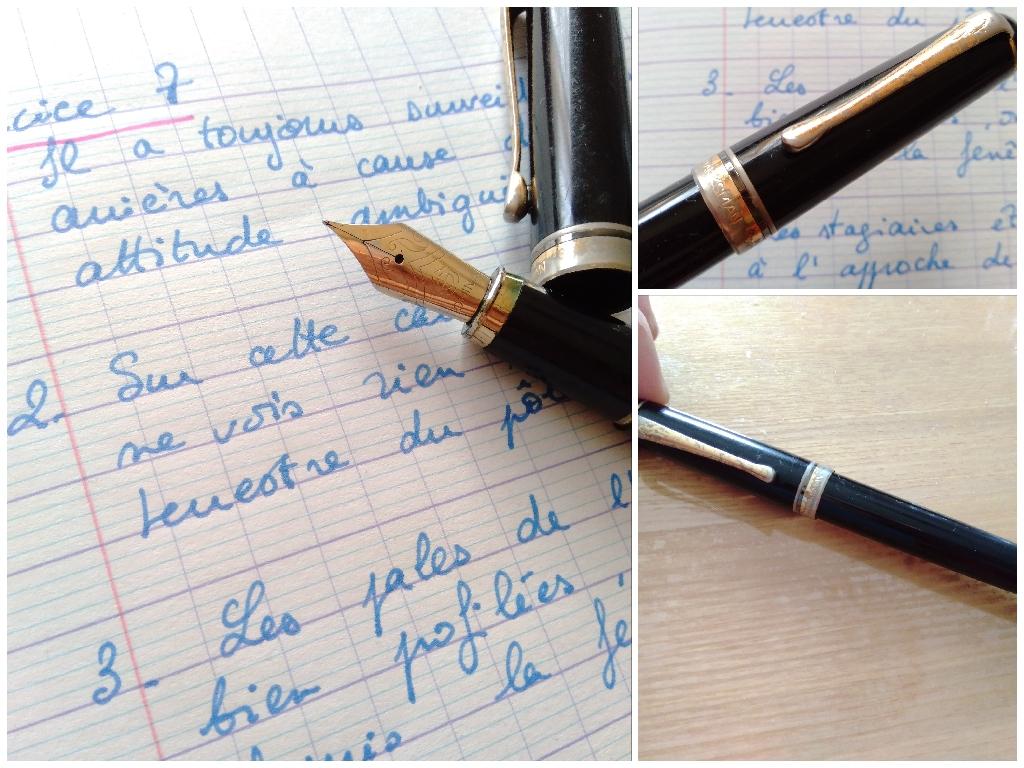 cice 7
Il a toujours
arrières à cause
attitude ambigui
2. Sur cette
ne vois rien
du pôl
3. Les pales de l'
bien profilées
la fe
3. Les
bi
la fenê
stagiaires
à l'approche de